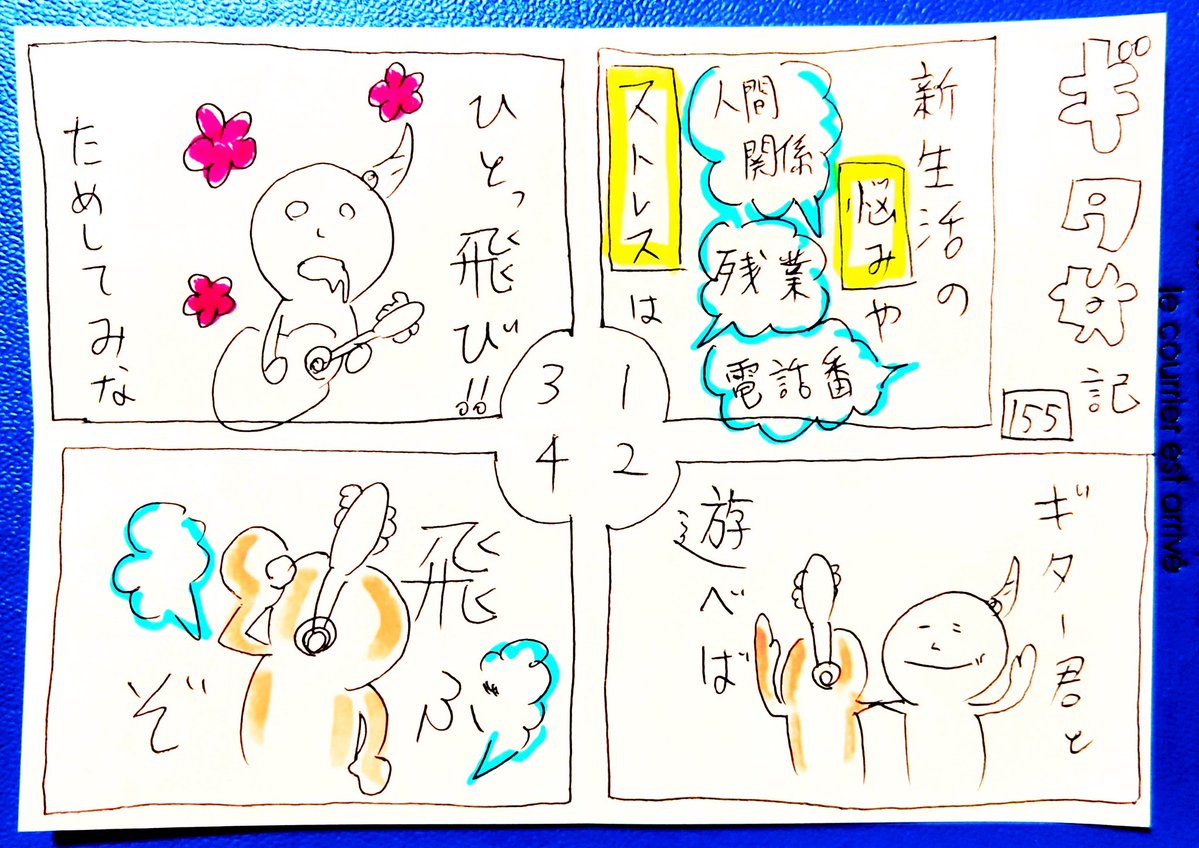 ギタ 記
155
1
新生活の
悩みや
人間
関係
残業
電話番
ストレスは
2
ギター君と
遊べば
3
ひとっ飛び!!
ためしてみな
4
飛ぶ
ぞ
le courrier est arrivé